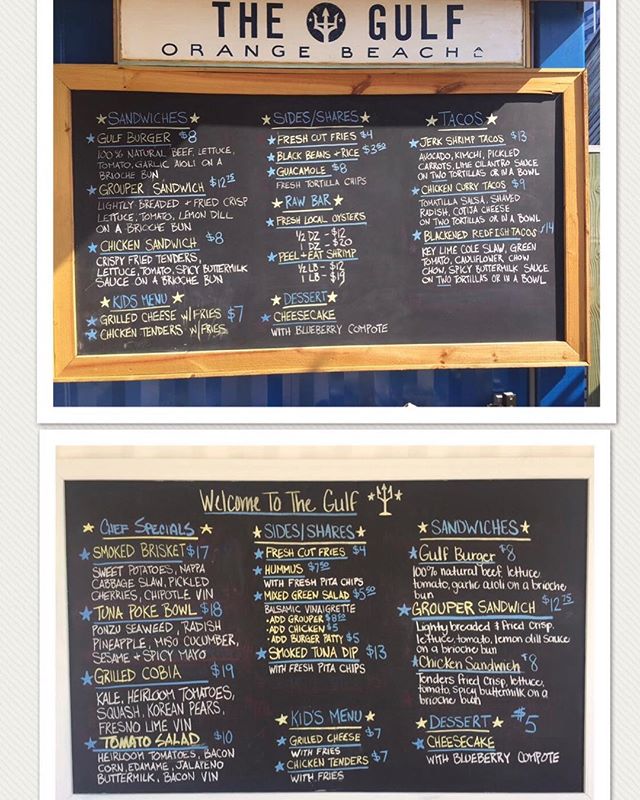 THE GULF
ORANGE BEACH
SANDWICHES
GULF BURGER $8
100% NATURAL BEEF, LETTUCE,
TOMATO, GARLIC AIOLI ON A
BRIOCHE BUN
GROUPER SANDWICH $12.75
LIGHTLY BREADED + FRIED CRISP
LETTUCE, TOMATO, LEMON DILL
ON A BRIOCHE BUN
CHICKEN SANDWICH $8
CRISPY FRIED TENDERS,
LETTUCE, TOMATO, SPICY BUTTERMILK
SAUCE ON A BRIOCHE BUN
KIDS MENU
GRILLED CHEESE W/FRIES $7
CHICKEN TENDERS W/FRIES
SIDES/SHARES
FRESH CUT FRIES $4
BLACK BEANS + RICE $3.50
GUACAMOLE $8
FRESH TORTILLA CHIPS
RAW BAR
FRESH LOCAL OYSTERS
1/2 DZ - $12
1 DZ - $20
PEEL + EAT SHRIMP
1/2 LB - $12
1 LB - $19
DESSERT
CHEESECAKE
WITH BLUEBERRY COMPOTE
TACOS
JERK SHRIMP TACOS $13
AVOCADO, KIMCHI, PICKLED
CARROTS, LIME CILANTRO SAUCE
ON TWO TORTILLAS OR IN A BOWL
CHICKEN CURRY TACOS $9
TOMATILLA SALSA, SHAVED
RADISH, COTIJA CHEESE
ON TWO TORTILLAS OR IN A BOWL
BLACKENED REDFISH TACOS $14
KEY LIME COLE SLAW, GREEN
TOMATO, CAULIFLOWER CHOW
CHOW, SPICY BUTTERMILK SAUCE
ON TWO TORTILLAS OR IN A BOWL
Welcome To The Gulf
CHEF SPECIALS
SMOKED BRISKET $17
SWEET POTATOES, NAPPA
CABBAGE SLAW, PICKLED
CHERRIES, CHIPOTLE VIN
TUNA POKE BOWL $18
PONZU SEAWEED, RADISH
PINEAPPLE, MISO CUCUMBER,
SESAME + SPICY MAYO
GRILLED COBIA $19
KALE, HEIRLOOM TOMATOES,
SQUASH, KOREAN PEARS,
FRESNO LIME VIN
TOMATO SALAD $10
HEIRLOOM TOMATOES, BACON
CORN, EDAMAME, JALAPENO
BUTTERMILK, BACON VIN
SIDES/SHARES
FRESH CUT FRIES $4
HUMMUS $7.50
WITH FRESH PITA CHIPS
MIXED GREEN SALAD $5.50
BALSAMIC VINAIGRETTE
· ADD GROUPER $8.50
· ADD CHICKEN $5
· ADD BURGER PATTY $5
SMOKED TUNA DIP $13
WITH FRESH PITA CHIPS
KID'S MENU
GRILLED CHEESE $7
WITH FRIES
CHICKEN TENDERS $7
WITH FRIES
SANDWICHES
Gulf Burger $8
100% natural beef, lettuce
tomato, garlic aioli on a brioche
bun
GROUPER SANDWICH $12.75
Lightly breaded & Fried Crisp.
lettuce, tomato, lemon dill sauce
on a brioche bun
Chicken Sandwich $8
Tenders fried crisp, lettuce,
tomato, spicy buttermilk on a
brioche bun
DESSERT $5
CHEESECAKE
WITH BLUEBERRY COMPOTE